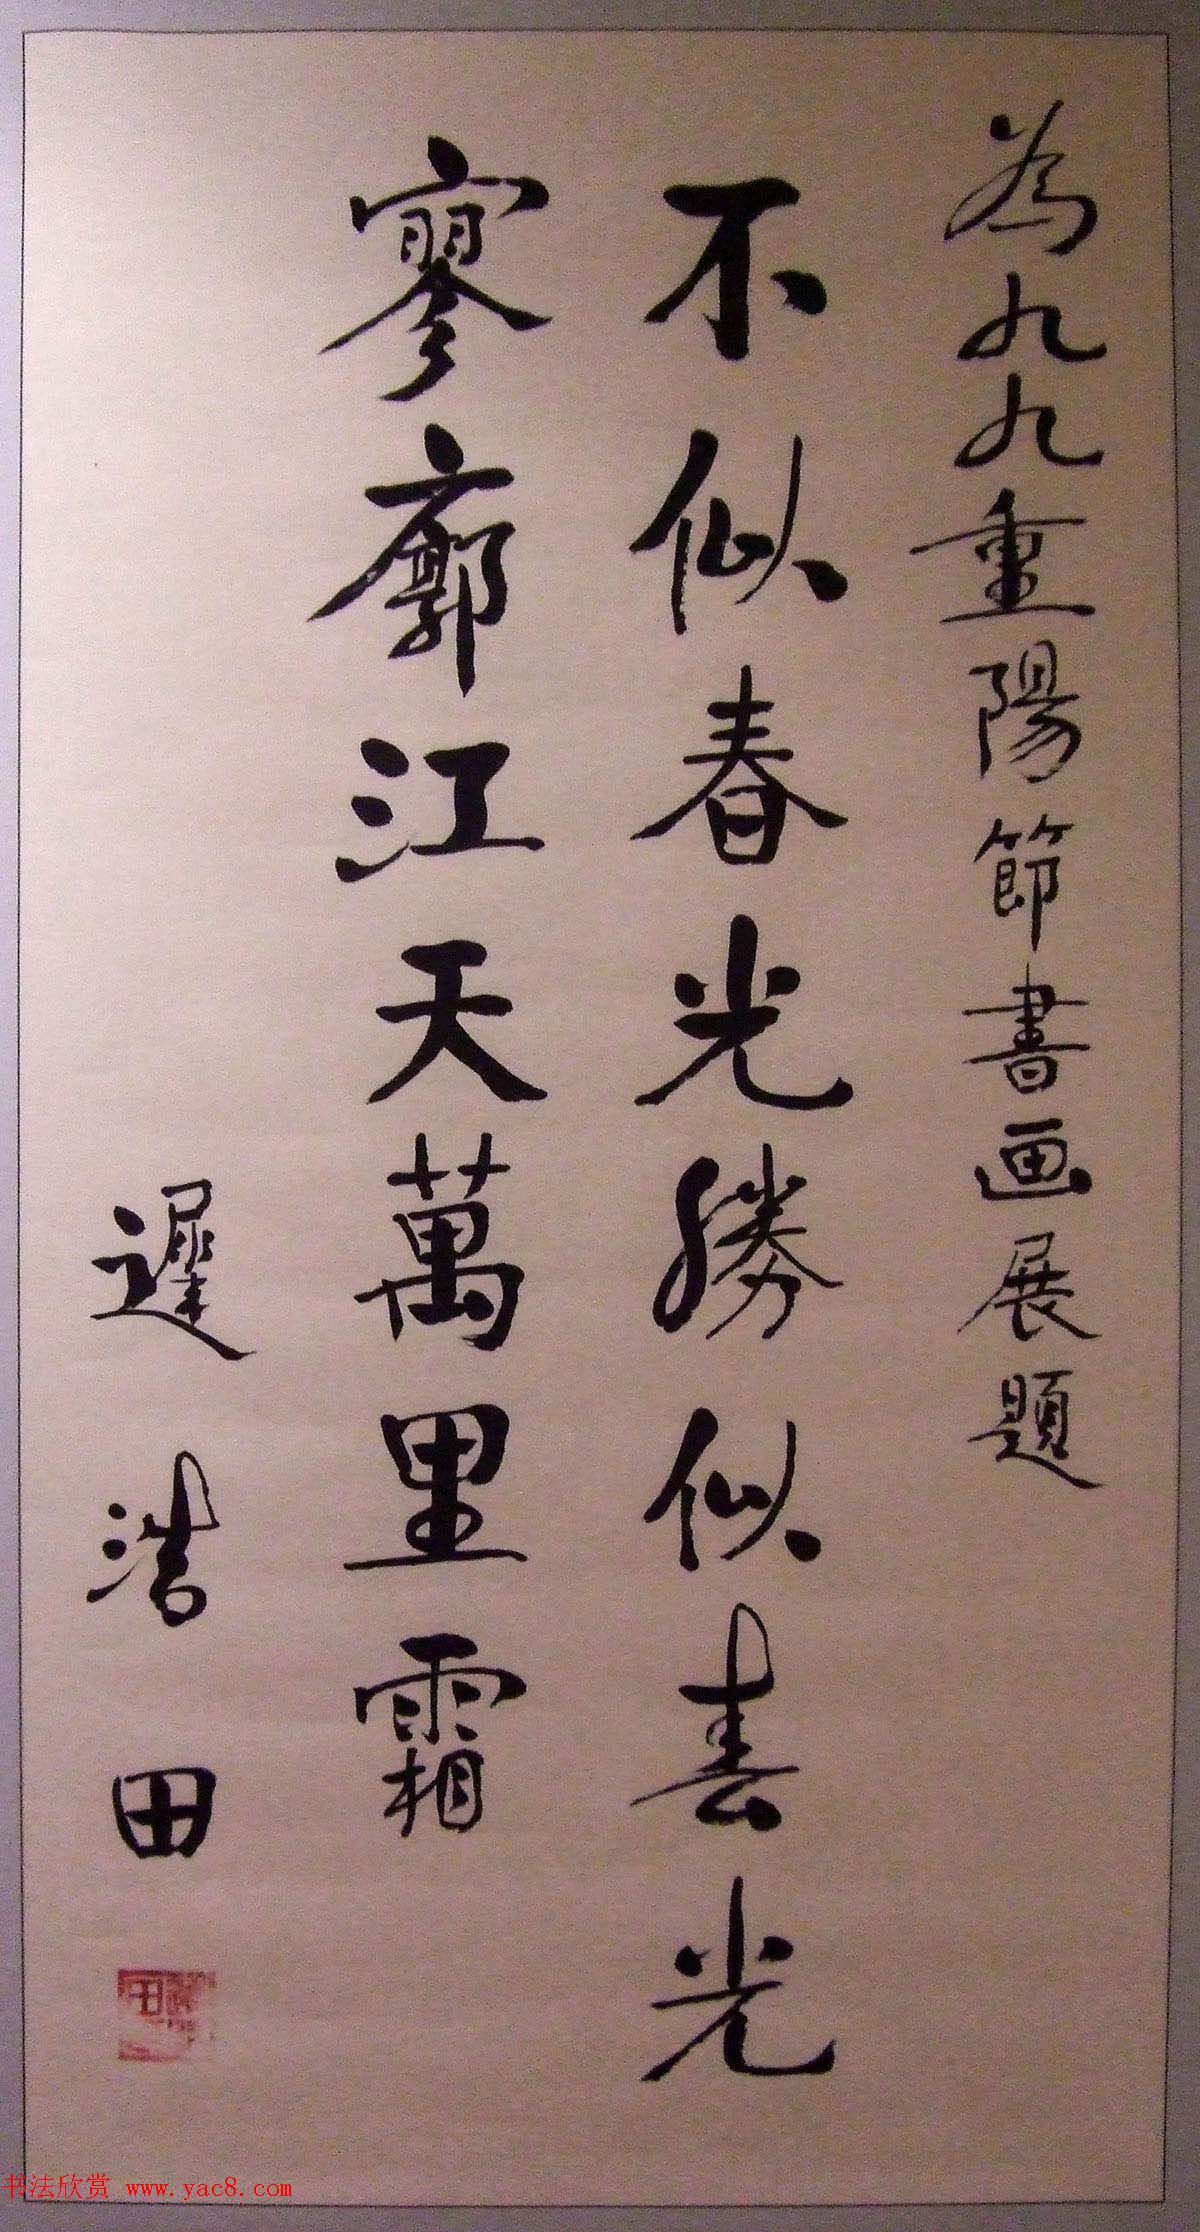 為九九重陽節書画展題
不似春光勝似春光
寥廓江天萬里霜
遲浩田
书法欣赏 www.yac8.com